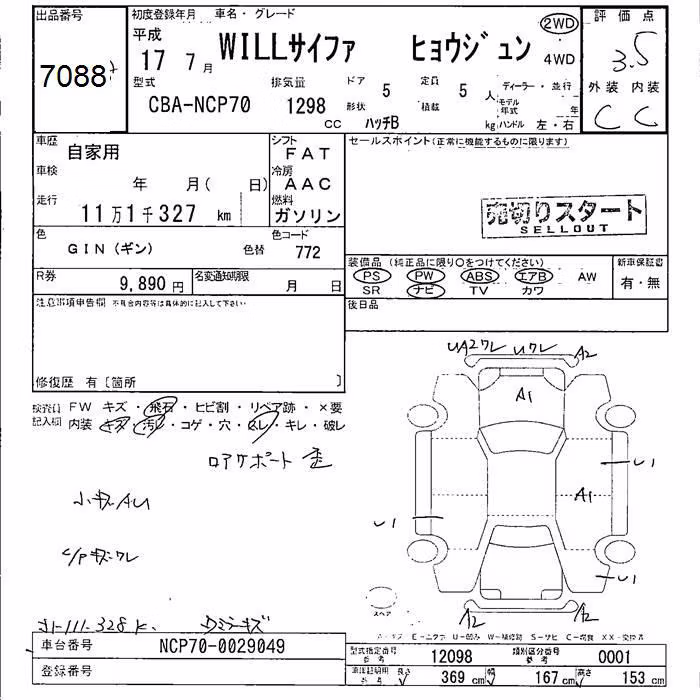 出品番号
7088
初度登録年月 車名・グレード
平成
17 7月
WILLサイファ ヒョウジュン
2WD
4WD
評価点
3.5
外装 内装
C C
型式
CBA-NCP70
排気量
1298
cc
ドア 5
形状 ハッチB
定員 5 人
積載 kg
ディーラー・並行
モデル年式 年
ハンドル 左・右
車歴 自家用
シフト FAT
車検 年 月( 日)
冷房 AAC
走行 11万1千327 km
燃料 ガソリン
セールスポイント(正常に機能するものに限ります)
売切りスタート
SELLOUT
色 GIN(ギン) 色替
色コード 772
R券 9,890 円
名変通知期限 月 日
装備品 (純正品に限り○をつけてください)
PS PW ABS エアB AW
SR ナビ TV カワ
新車保証書
有・無
後日品
注意事項申告欄 不具合内容等は具体的に記入して下さい
修復歴 有〔箇所 〕
検査員記入欄
FW キズ・飛石・ヒビ割・リペア跡・×要
内装 キズ・汚レ・コゲ・穴・スレ・キレ・破レ
UA2ワレ Uワレ A2
A1
U1
A1
U1
U1
A2 A2
スペア
A-キズ E-エクボ U-凹み W-補修跡 S-サビ C-腐食 XX-交換済
車台番号 NCP70-0029049
登録番号
型式指定番号 参考 12098
類別区分番号 参考 0001
車検証明用 参考 長さ 369 cm 幅 167 cm 高さ 153 cm